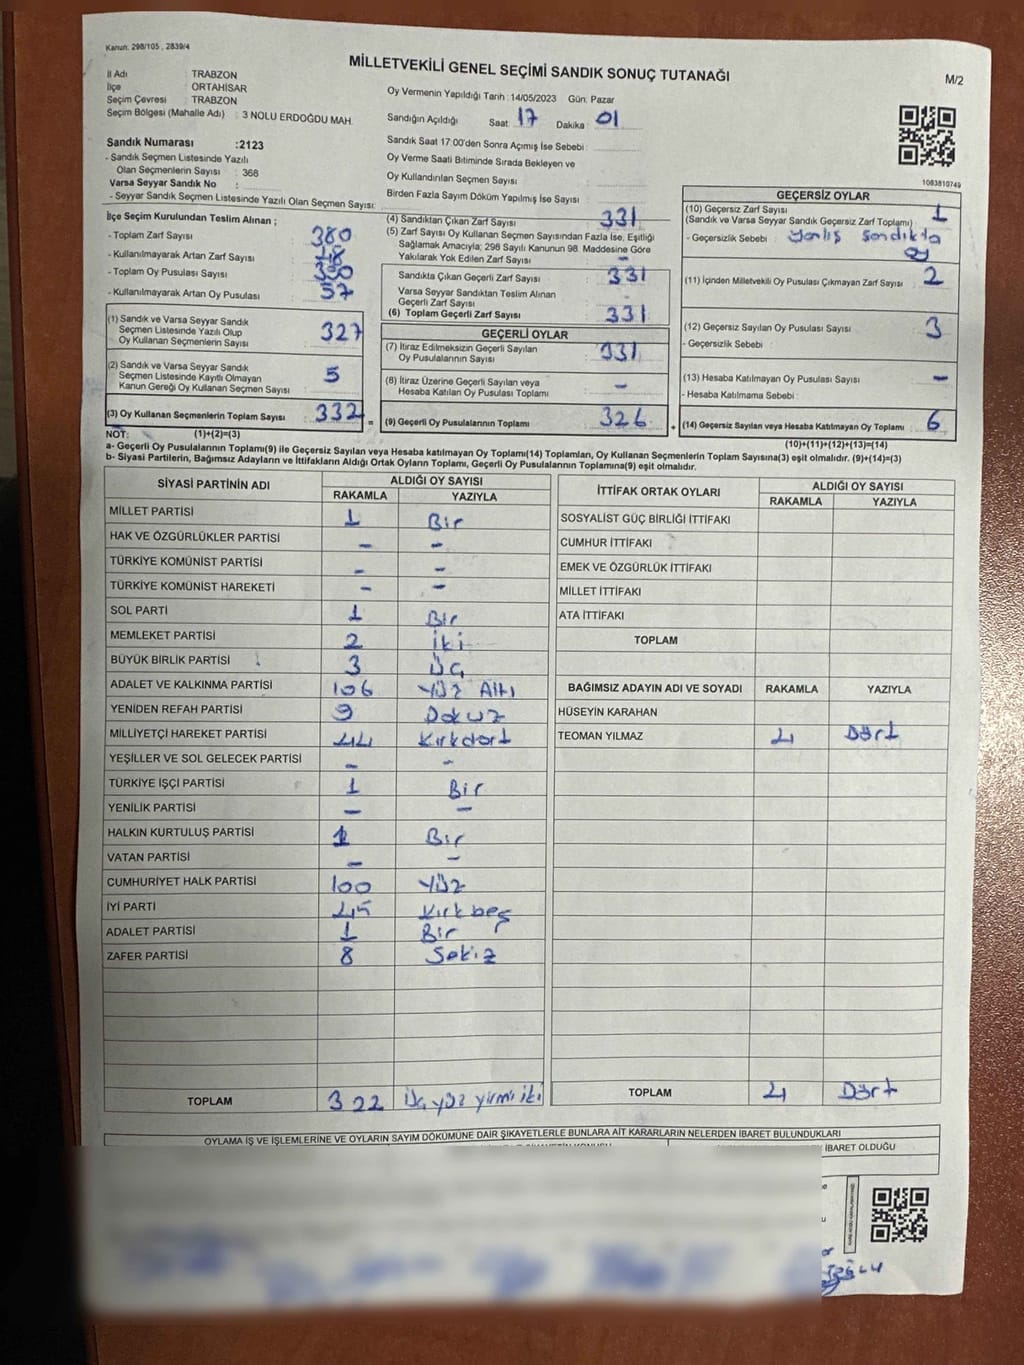 Kanun: 298/105 , 2839/4
MİLLETVEKİLİ GENEL SEÇİMİ SANDIK SONUÇ TUTANAĞI
M/2
İl Adı : TRABZON
İlçe : ORTAHİSAR
Seçim Çevresi : TRABZON
Seçim Bölgesi (Mahalle Adı) : 3 NOLU ERDOĞDU MAH.
Sandık Numarası :2123
- Sandık Seçmen Listesinde Yazılı
Olan Seçmenlerin Sayısı : 368
Varsa Seyyar Sandık No :
- Seyyar Sandık Seçmen Listesinde Yazılı Olan Seçmen Sayısı:
Oy Vermenin Yapıldığı Tarih :14/05/2023 Gün: Pazar
Sandığın Açıldığı Saat 17 Dakika 01
Sandık Saat 17:00'den Sonra Açılmış İse Sebebi :
Oy Verme Saati Bitiminde Sırada Bekleyen ve
Oy Kullandırılan Seçmen Sayısı :
Birden Fazla Sayım Döküm Yapılmış İse Sayısı :
1083810749
İlçe Seçim Kurulundan Teslim Alınan ;
- Toplam Zarf Sayısı : 380
- Kullanılmayarak Artan Zarf Sayısı : 48
- Toplam Oy Pusulası Sayısı : 390
- Kullanılmayarak Artan Oy Pusulası : 57
(1) Sandık ve Varsa Seyyar Sandık
Seçmen Listesinde Yazılı Olup
Oy Kullanan Seçmenlerin Sayısı : 327
(2) Sandık ve Varsa Seyyar Sandık
Seçmen Listesinde Kayıtlı Olmayan
Kanun Gereği Oy Kullanan Seçmen Sayısı : 5
(3) Oy Kullanan Seçmenlerin Toplam Sayısı : 332 =
(4) Sandıktan Çıkan Zarf Sayısı : 331
(5) Zarf Sayısı Oy Kullanan Seçmen Sayısından Fazla İse, Eşitliği
Sağlamak Amacıyla; 298 Sayılı Kanunun 98. Maddesine Göre
Yakılarak Yok Edilen Zarf Sayısı : -
Sandıkta Çıkan Geçerli Zarf Sayısı : 331
Varsa Seyyar Sandıktan Teslim Alınan
Geçerli Zarf Sayısı :
(6) Toplam Geçerli Zarf Sayısı : 331
GEÇERLİ OYLAR
(7) İtiraz Edilmeksizin Geçerli Sayılan
Oy Pusulalarının Sayısı : 331
(8) İtiraz Üzerine Geçerli Sayılan veya
Hesaba Katılan Oy Pusulası Toplamı : -
(9) Geçerli Oy Pusulalarının Toplamı : 326 +
GEÇERSİZ OYLAR
(10) Geçersiz Zarf Sayısı : 1
(Sandık ve Varsa Seyyar Sandık Geçersiz Zarf Toplamı)
- Geçersizlik Sebebi : yanlış sandıkta
oy
(11) İçinden Milletvekili Oy Pusulası Çıkmayan Zarf Sayısı : 2
(12) Geçersiz Sayılan Oy Pusulası Sayısı : 3
- Geçersizlik Sebebi :
(13) Hesaba Katılmayan Oy Pusulası Sayısı : -
- Hesaba Katılmama Sebebi :
(14) Geçersiz Sayılan veya Hesaba Katılmayan Oy Toplamı : 6
NOT: (1)+(2)=(3)
(10)+(11)+(12)+(13)=(14)
a- Geçerli Oy Pusulalarının Toplamı(9) ile Geçersiz Sayılan veya Hesaba katılmayan Oy Toplamı(14) Toplamları, Oy Kullanan Seçmenlerin Toplam Sayısına(3) eşit olmalıdır. (9)+(14)=(3)
b- Siyasi Partilerin, Bağımsız Adayların ve İttifakların Aldığı Ortak Oyların Toplamı, Geçerli Oy Pusulalarının Toplamına(9) eşit olmalıdır.
SİYASİ PARTİNİN ADI ALDIĞI OY SAYISI
RAKAMLA YAZIYLA
MİLLET PARTİSİ 1 Bir
HAK VE ÖZGÜRLÜKLER PARTİSİ - -
TÜRKİYE KOMÜNİST PARTİSİ - -
TÜRKİYE KOMÜNİST HAREKETİ - -
SOL PARTİ 1 Bir
MEMLEKET PARTİSİ 2 iki
BÜYÜK BİRLİK PARTİSİ 3 Üç
ADALET VE KALKINMA PARTİSİ 106 Yüz Altı
YENİDEN REFAH PARTİSİ 9 Dokuz
MİLLİYETÇİ HAREKET PARTİSİ 44 Kırkdört
YEŞİLLER VE SOL GELECEK PARTİSİ - -
TÜRKİYE İŞÇİ PARTİSİ 1 Bir
YENİLİK PARTİSİ - -
HALKIN KURTULUŞ PARTİSİ 1 Bir
VATAN PARTİSİ - -
CUMHURİYET HALK PARTİSİ 100 Yüz
İYİ PARTİ 45 Kırkbeş
ADALET PARTİSİ 1 Bir
ZAFER PARTİSİ 8 Sekiz
TOPLAM 322 Üç yüz yirmi iki
İTTİFAK ORTAK OYLARI ALDIĞI OY SAYISI
RAKAMLA YAZIYLA
SOSYALİST GÜÇ BİRLİĞİ İTTİFAKI
CUMHUR İTTİFAKI
EMEK VE ÖZGÜRLÜK İTTİFAKI
MİLLET İTTİFAKI
ATA İTTİFAKI
TOPLAM
BAĞIMSIZ ADAYIN ADI VE SOYADI RAKAMLA YAZIYLA
HÜSEYİN KARAHAN
TEOMAN YILMAZ 4 Dört
TOPLAM 4 Dört
OYLAMA İŞ VE İŞLEMLERİNE VE OYLARIN SAYIM DÖKÜMÜNE DAİR ŞİKAYETLERLE BUNLARA AİT KARARLARIN NELERDEN İBARET BULUNDUKLARI
İBARET OLDUĞU